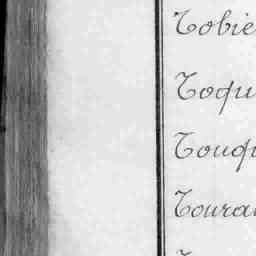 Tobie
Toqu
Touqu
Toura